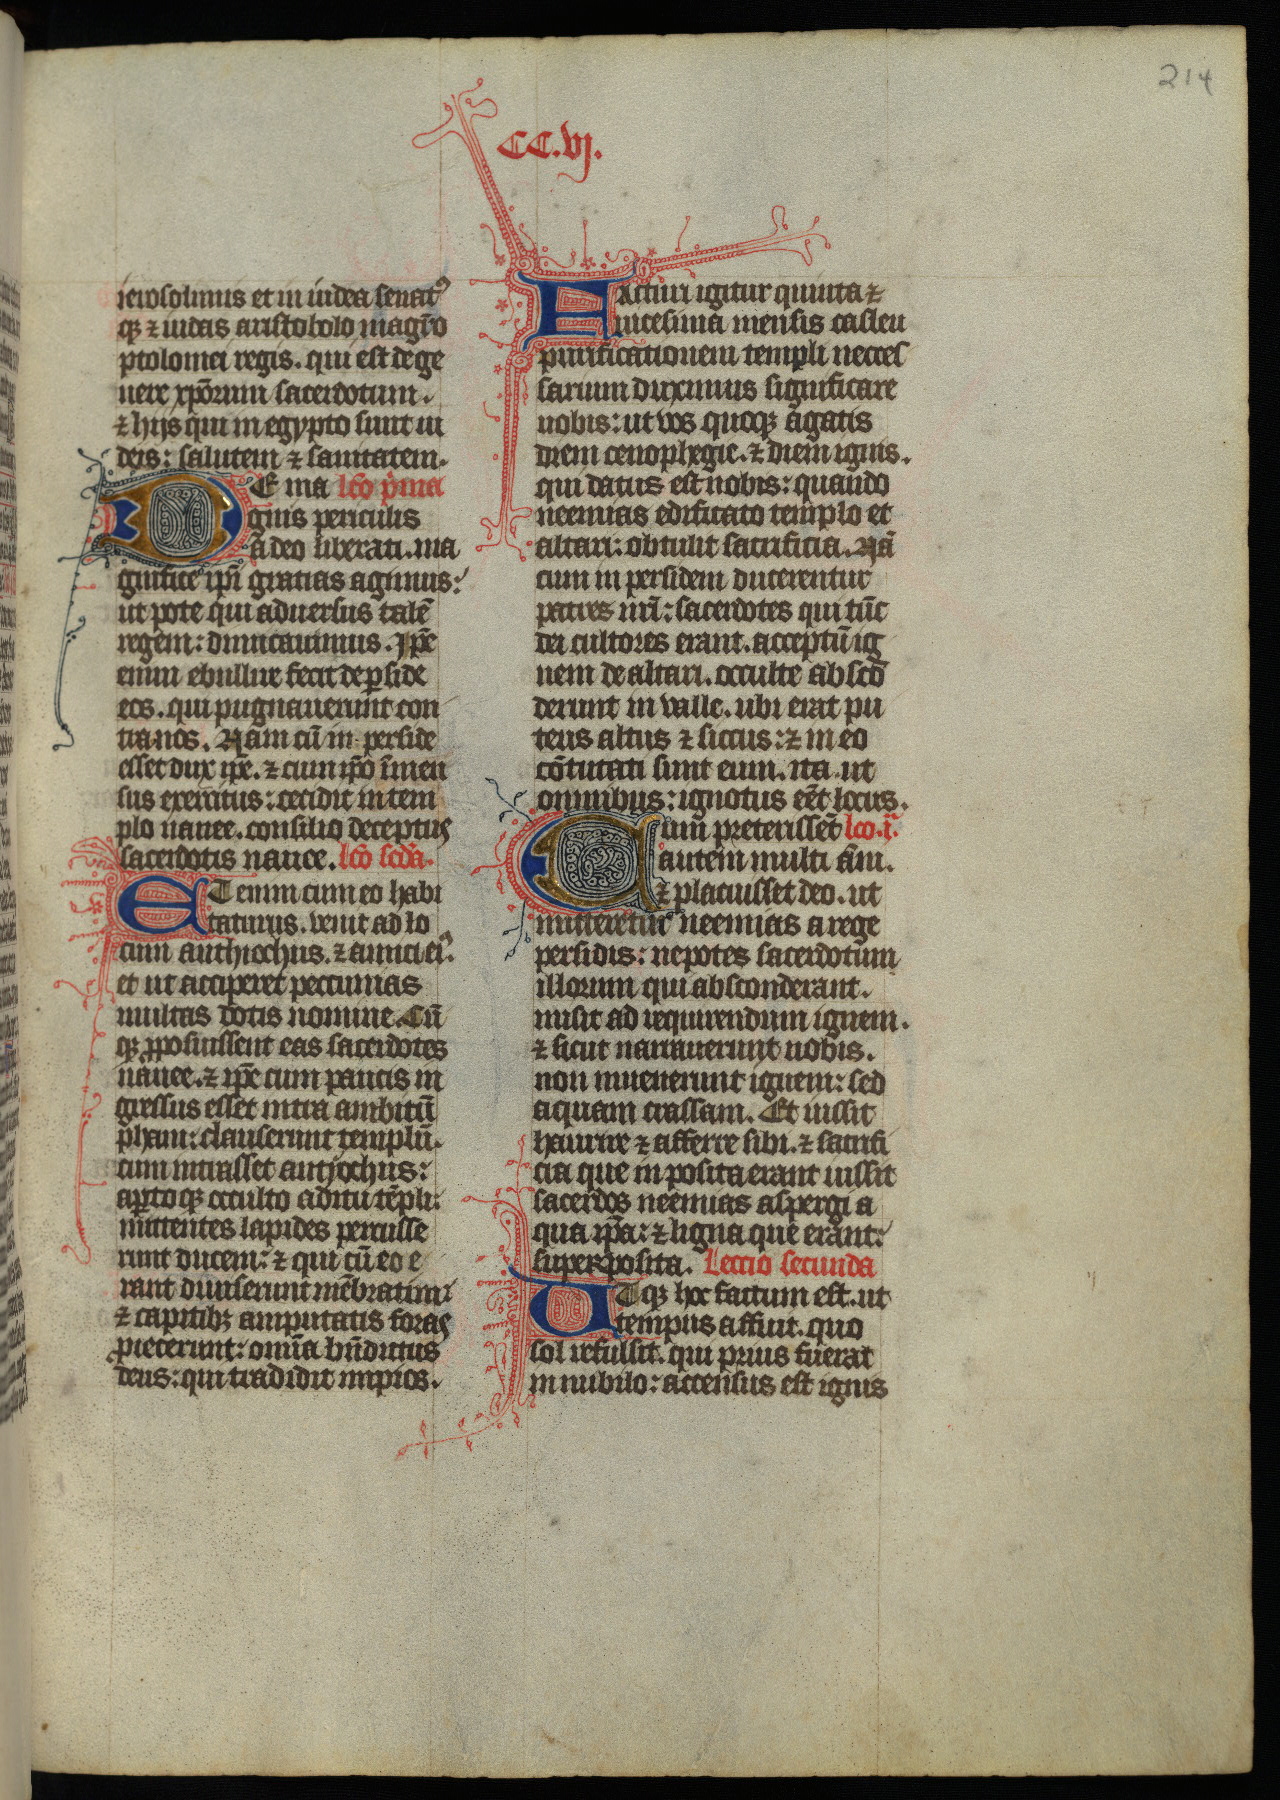 214
CC.vj.
ierosolimis et in iudea senatꝰ
qꝫ ⁊ iudas aristobolo magr̄o
ptolomei regis. qui est de ge
nere xp̄orum sacerdotum.
⁊ hijs qui in egypto sunt iu
deis: salutem ⁊ sanitatem.
DE ma lc̄o p̄ma
gnis periculis
a deo liberati. ma
gnifice ip̄i gratias agimus:
ut pote qui aduersus talē
regem: dimicauimus. Ip̄e
enim ebullire fecit de ꝑside
eos. qui pugnauerunt con
tra nos. Nam cū in perside
esset dux ip̄e. ⁊ cum ip̄o īmen
sus exercitus: cecidit in tem
plo nanee. consilio deceptus
sacerdotis nanee. lc̄o scd̄a.
ET enim cum eo habi
taturus. venit ad lo
cum anthiochus. ⁊ amici eiꝰ.
et ut acciperet peccunias
multas dotis nomine. Cū
qꝫ ꝓposuissent eas sacerdotes
nanee. ⁊ ip̄e cum paucis in
gressus esset intra ambitū
phani: clauserunt templū.
cum intrasset antyochus:
aꝑto qꝫ occulto aditu tēpli:
mittentes lapides percusse
runt ducem: ⁊ qui cū eo e
rant diuiserunt mēbratim:
⁊ capitibꝫ amputatis foras
proiecerunt: om̄ia bn̄dictus
deus: qui tradidit impios.
FActuri igitur quinta ⁊
uicesima mensis casleu
purificationem templi neces
sarium duximus significare
uobis: ut vos quoqꝫ agatis
diem cenophegie. ⁊ diem ignis.
qui datus est nobis: quando
neemias edificato templo et
altari: obtulit sacrificia. Nā
cum in persidem ducerentur
patres nr̄i: sacerdotes qui tūc
dei cultores erant. acceptū ig
nem de altari. occulte absco
derunt in valle. ubi erat pu
teus altus ⁊ siccus: ⁊ in eo
cōtutati sunt eum. ita ut
omnibus: ignotus eēt locus.
Cum preterissēt lc̄o .i.ª
autem multi āni.
⁊ placuisset deo. ut
mitteretur neemias a rege
persidis: nepotes sacerdotum
illorum qui absconderant.
misit ad requirendum ignem.
⁊ sicut narrauerunt nobis.
non inuenerunt ignem: sed
aquam crassam. Et iussit
haurire ⁊ afferre sibi. ⁊ sacrifi
cia que inposita erant iussit
sacerdos neemias aspergi a
qua ip̄a: ⁊ ligna que erant:
superposita. Leccio secunda
UT qꝫ hoc factum est. ut
tempus affuit. quo
sol refulsit. qui prius fuerat
in nubilo: accensus est ignis